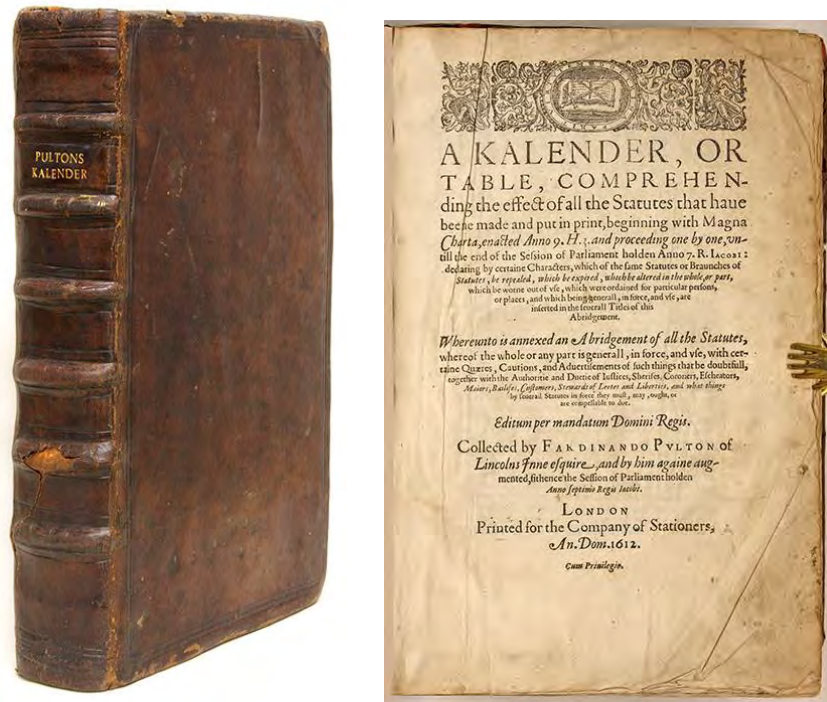 PULTONS
KALENDER
A KALENDER, OR
TABLE, COMPREHEN-
ding the effect of all the Statutes that haue
beene made and put in print, beginning with Magna
Charta, enacted Anno 9. H. 3. and proceeding one by one, vn-
till the end of the Session of Parliament holden Anno 7. R. IACOBI:
declaring by certaine Characters, which of the same Statutes or Braunches of
Statutes, be repealed, which be expired, which be altered in the whole, or part,
which be worne out of vse, which were ordained for particular persons,
or places, and which being generall, in force, and vse, are
inserted in the seuerall Titles of this
Abridgement.
Whereunto is annexed an Abridgement of all the Statutes,
whereof the whole or any part is generall, in force, and vse, with cer-
taine Quæres, Cautions, and Aduertisements of such things that be doubtfull,
together with the Authoritie and Duetie of Iustices, Sherifes, Coroners, Escheators,
Maiors, Bailifes, Customers, Stewards of Leetes and Liberties, and what things
by seuerall Statutes in force they must, may, ought, or
are compellable to doe.
Editum per mandatum Domini Regis.
Collected by FARDINANDO PVLTON of
Lincolns Inne esquire, and by him againe aug-
mented, sithence the Session of Parliament holden
Anno septimo Regis Iacobi.
LONDON
Printed for the Company of Stationers,
An. Dom. 1612.
Cum Priuilegio.